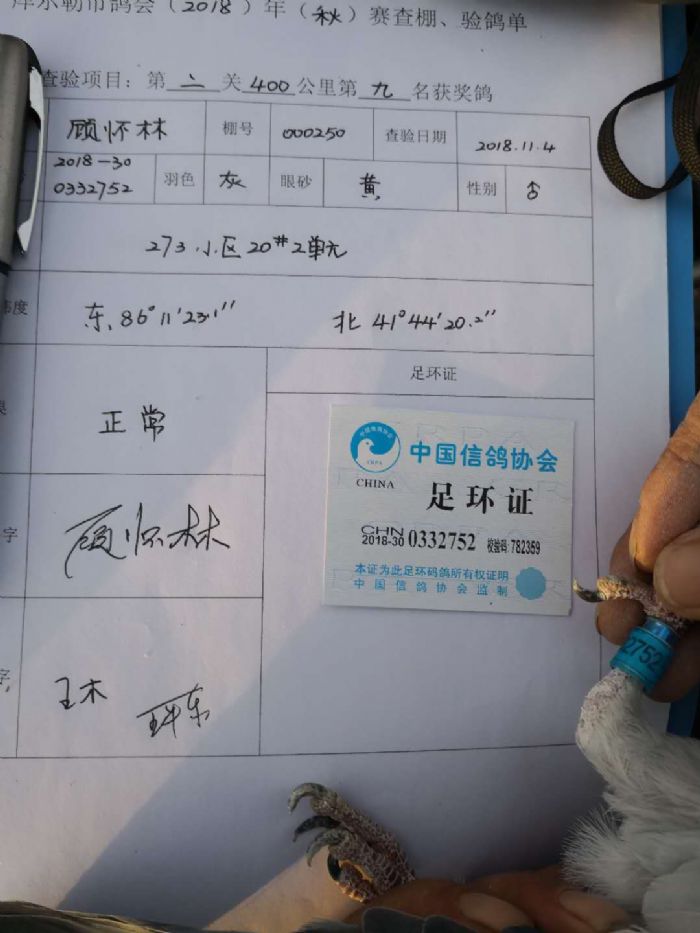 库尔勒市鸽会(2018)年(秋)赛查棚、验鸽单
查验项目：第二关400公里第九名获奖鸽
顾怀林 棚号 000250 查验日期 2018.11.4
2018-30
0332752 羽色 灰 眼砂 黄 性别 ♂
273小区20#2单元
纬度 东.86°11'23.1" 北 41°44'20.2"
足环证
正常
中国信鸽协会
CHINA
足环证
CHN
2018-30 0332752 校验码:782359
本证为此足环码鸽所有权证明
中国信鸽协会监制
字 顾怀林
2752
字,
王木